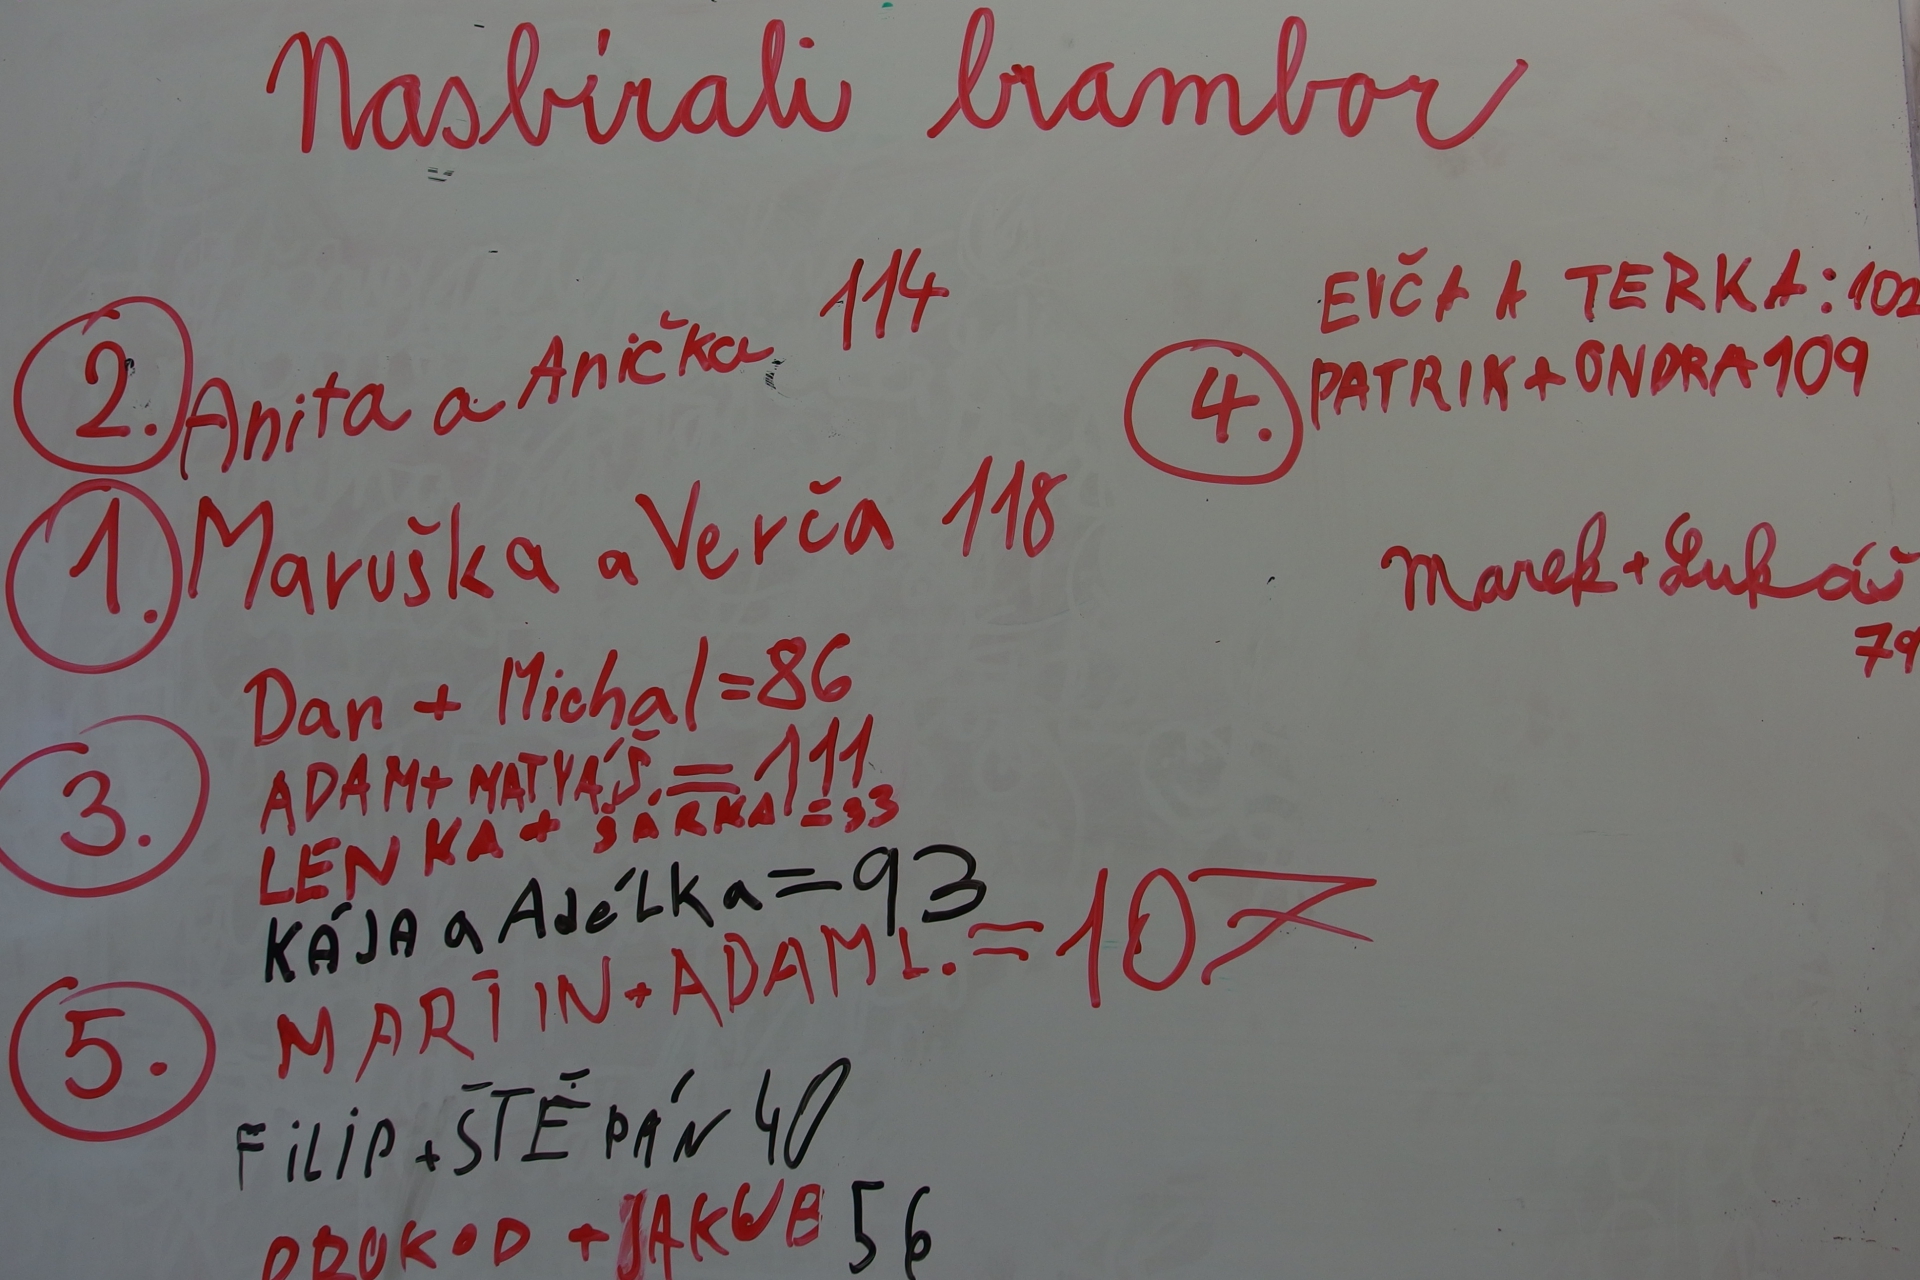 Nasbírali brambor
2. Anita a Anička 114
1. Maruška a Verča 118
Dan + Michal = 86
3. ADAM + MATYÁŠ. = 111
LENKA + ŠÁRKA = 33
KÁJA a Adélka = 93
5. MARTIN + ADAM L. = 107
FILIP + ŠTĚPÁN 40
PROKOP + JAKUB 56
EVČA A TERKA: 102
4. PATRIK + ONDRA 109
Marek + Lukáš
79